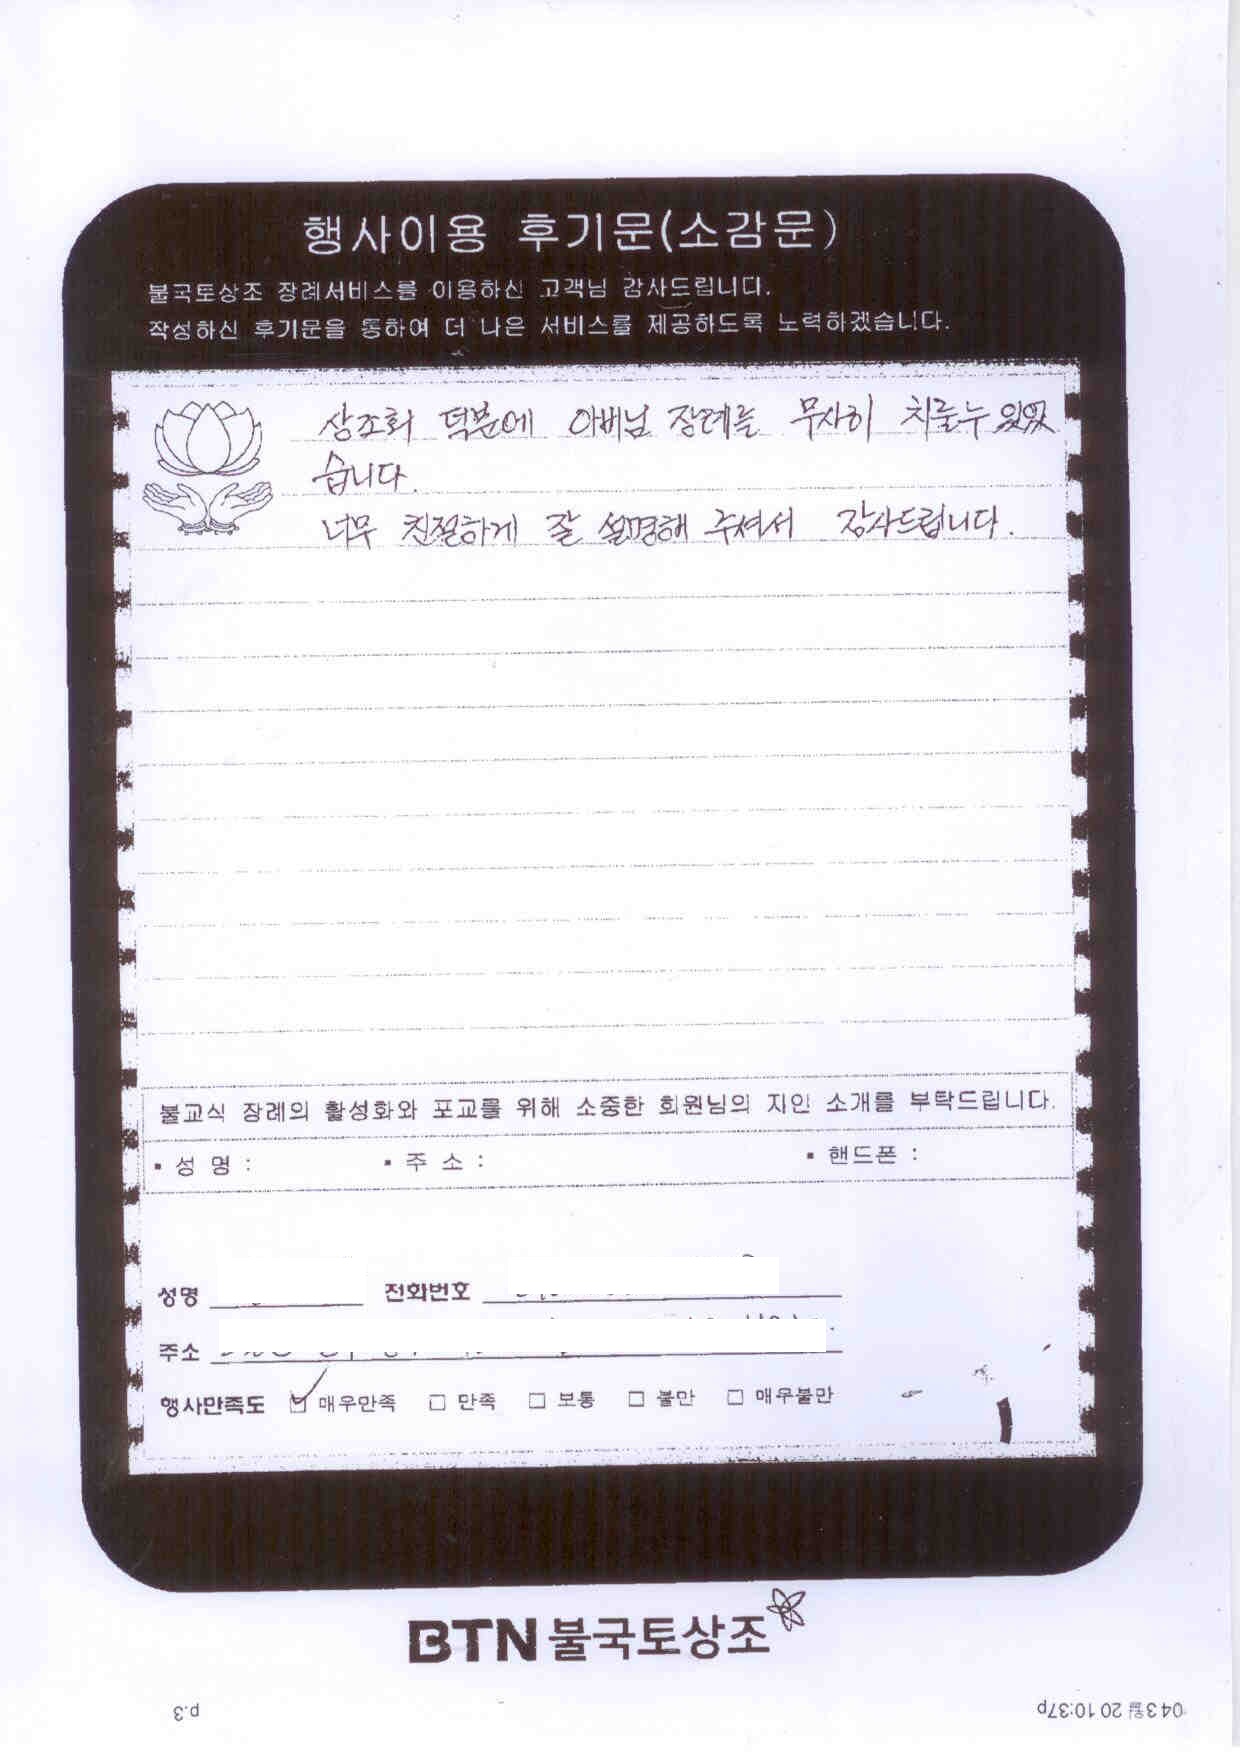 행사이용 후기문(소감문)
불국토상조 장례서비스를 이용하신 고객님 감사드립니다.
작성하신 후기문을 통하여 더 나은 서비스를 제공하도록 노력하겠습니다.
상조회 덕분에 아버님 장례를 무사히 치룰수 있었
습니다.
너무 친절하게 잘 설명해 주셔서 감사드립니다.
불교식 장례의 활성화와 포교를 위해 소중한 회원님의 지인 소개를 부탁드립니다.
▪ 성 명 : ▪ 주 소 : ▪ 핸드폰 :
성명 전화번호
주소
행사만족도 ☑ 매우만족 □ 만족 □ 보통 □ 불만 □ 매우불만
BTN 불국토상조
p.3
04 3월 20 10:37p